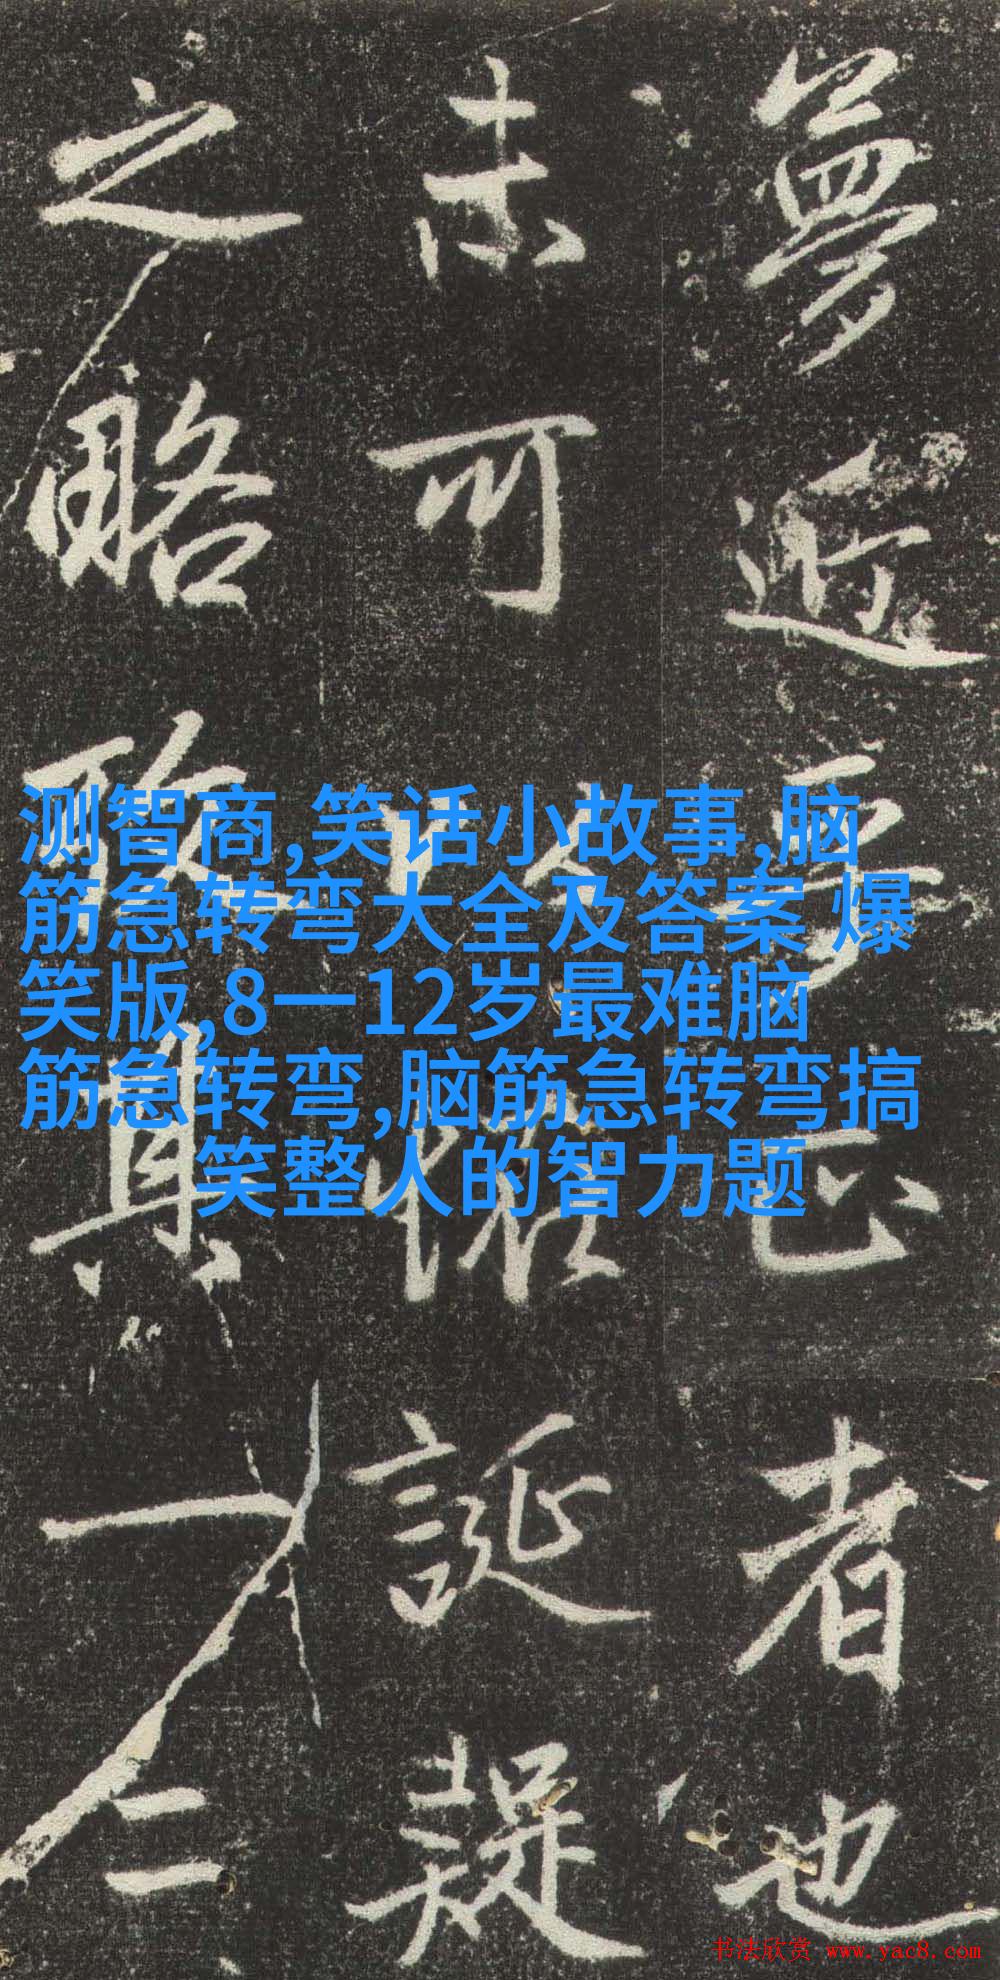 测智商,笑话小故事,脑
筋急转弯大全及答案 爆
笑版,8一12岁最难脑
筋急转弯,脑筋急转弯搞
笑整人的智力题
夢近夢正者也
未可以誕疑
之略真一仁
书法欣赏 www.yac8.com